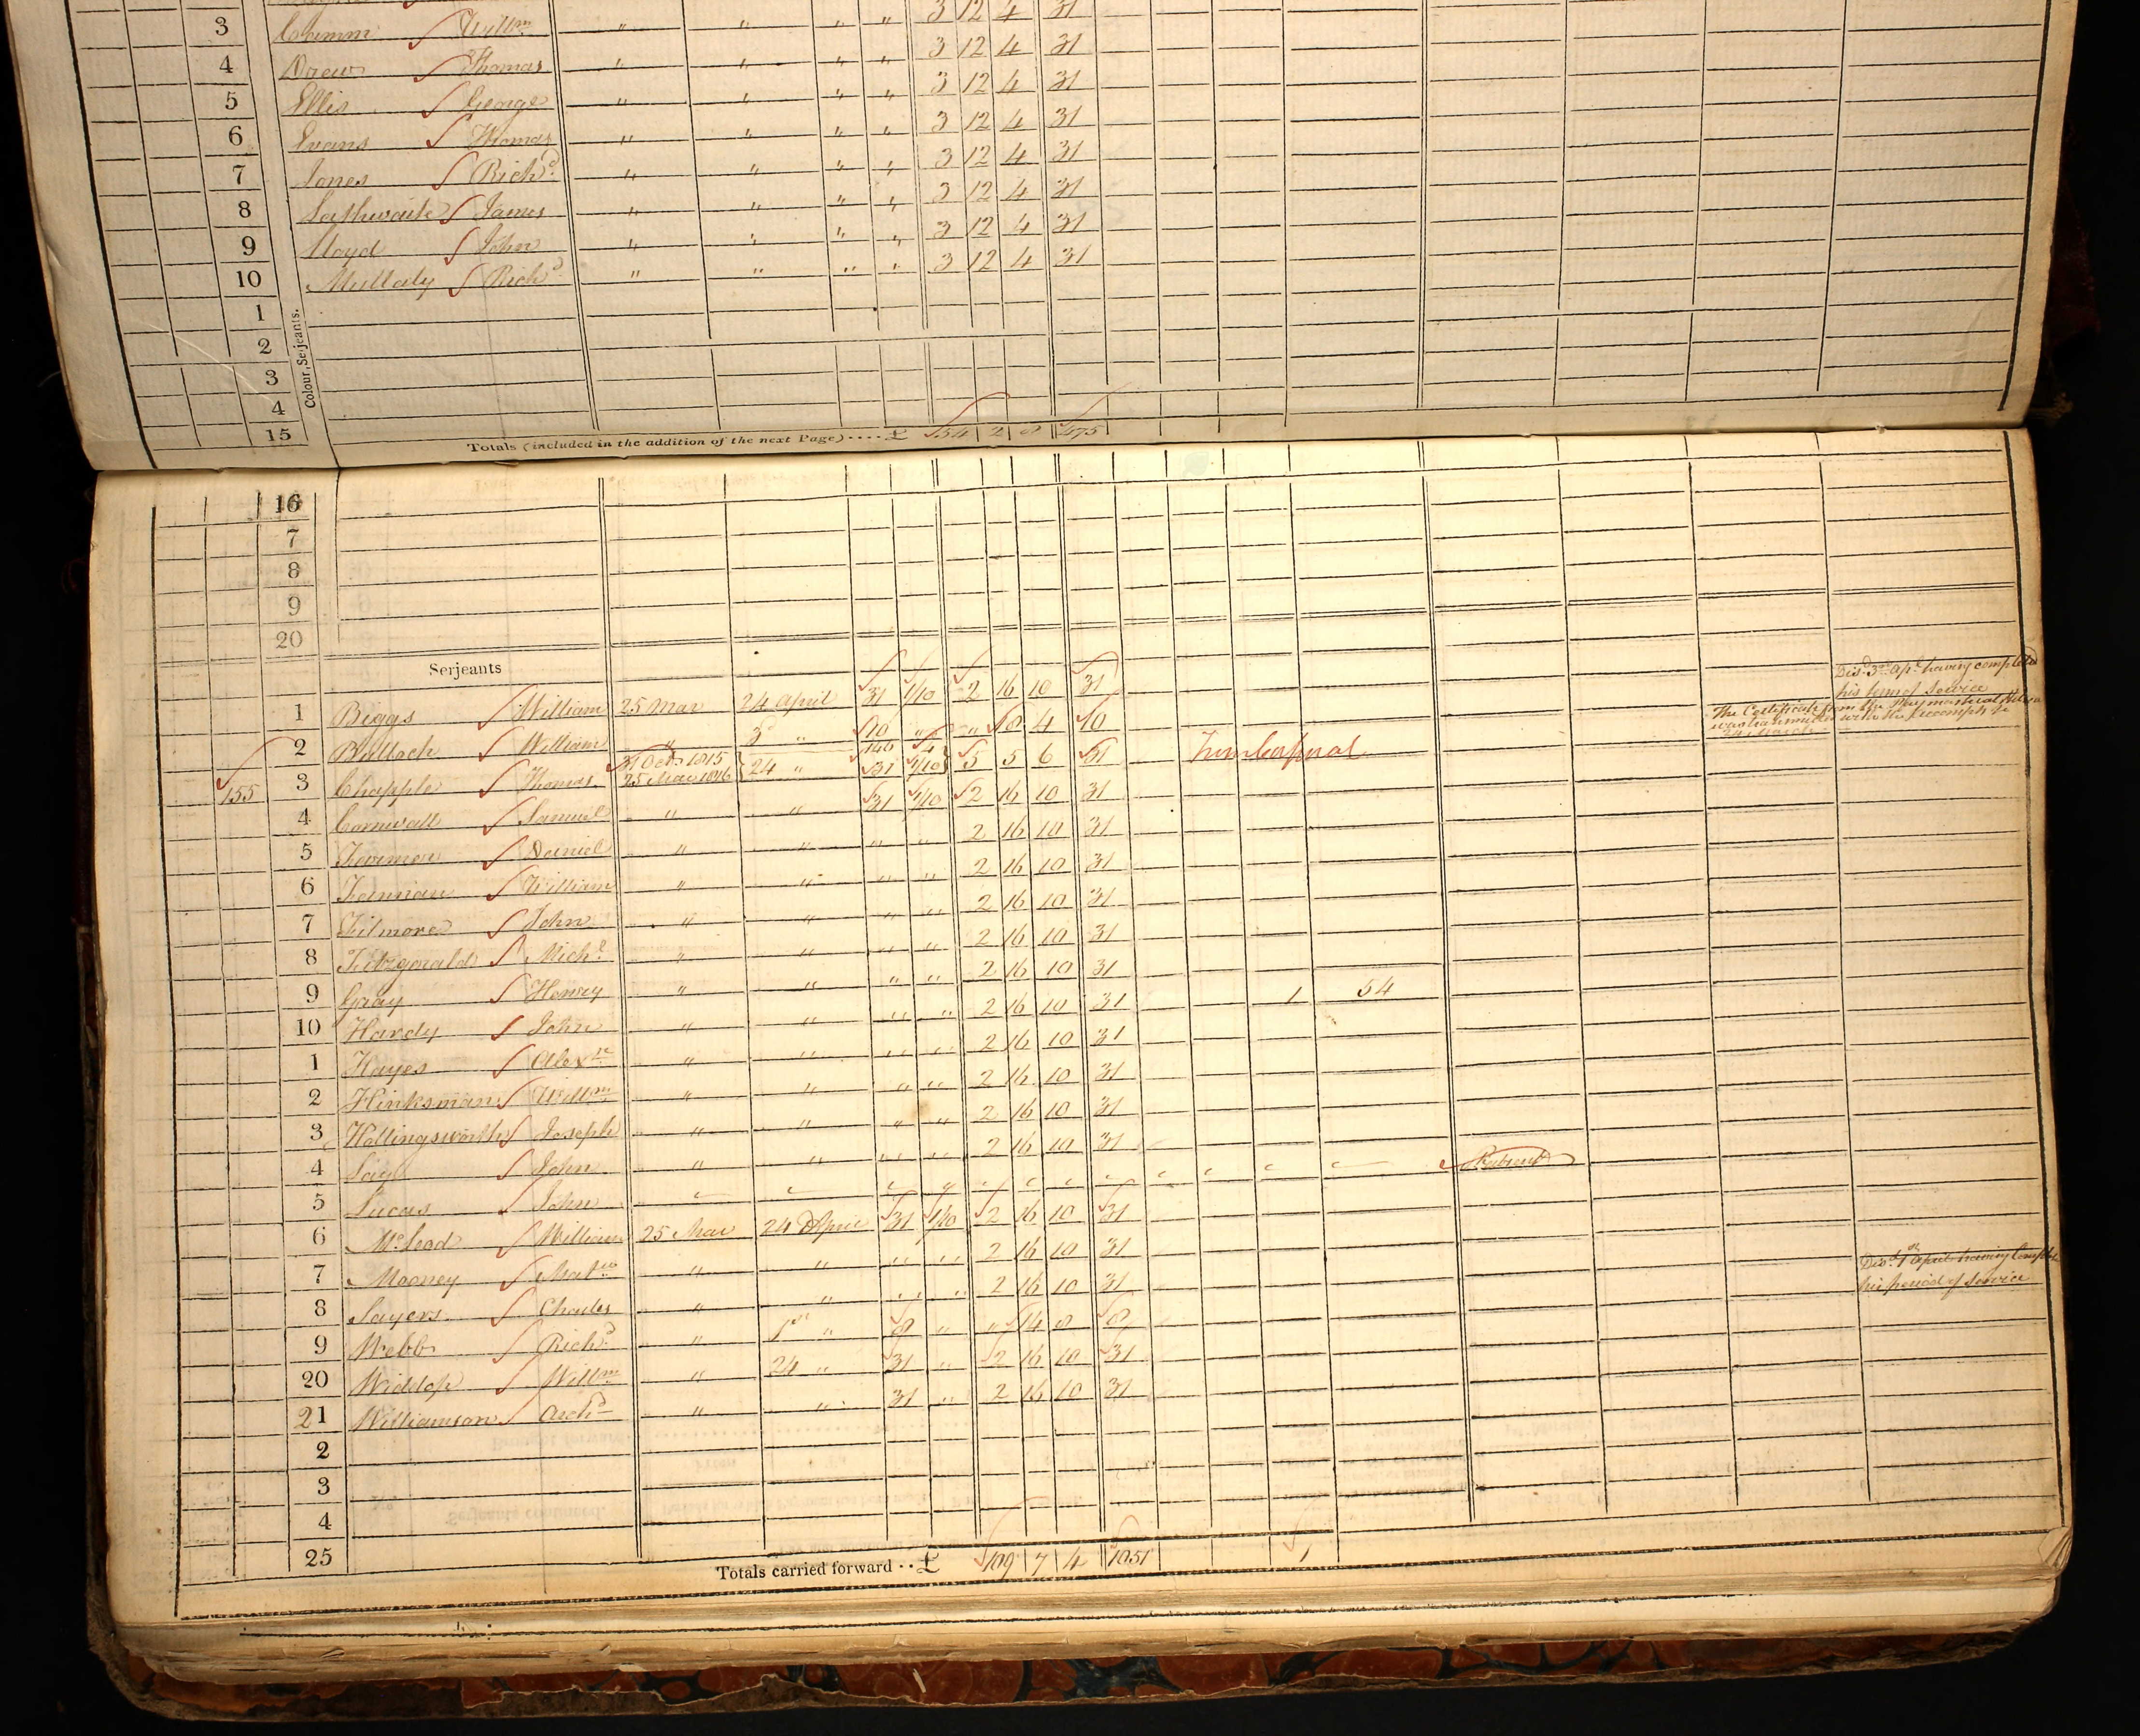 3 Cramm Willm " " " " 3 12 4 31
4 Drew Thomas " " " " 3 12 4 31
5 Ellis George " " " " 3 12 4 31
6 Evans Thomas " " " " 3 12 4 31
7 Jones Richd " " " " 3 12 4 31
8 James " " " " 3 12 4 31
9 Lloyd John " " " " 3 12 4 31
10 Mullady Richd " " " " 3 12 4 31
1
2
3
4
15
Colour, Serjeants.
Totals (included in the addition of the next Page) .... £ 54 2 8 475
16
7
8
9
20
Serjeants
1 Biggs William 25 Mar 24 April 31 1/10 2 16 10 31
2 Bullock William " 3d " 10 " " 18 4 10
Disd 3rd Apl having completed
his term of Service
155 3 Chapple Thomas 31 Octr 1815 146 4
25 Mar 1816 24 " 31 1/10 5 5 6 31
4 Cornwall Samuel " " 31 1/10 2 16 10 31
5 Farmer Daniel " " " " 2 16 10 31
6 William " " " " 2 16 10 31
7 Filmore John " " " " 2 16 10 31
8 Fitzgerald Michl " " " " 2 16 10 31
9 Gray Henry " " " " 2 16 10 31
10 Hardy John " " " " 2 16 10 31 1 54
1 Hayes Alexr " " " " 2 16 10 31
2 Hinksman Willm " " " " 2 16 10 31
3 Hollingsworth Joseph " " " " 2 16 10 31
4 John " " " " 2 16 10 31
5 Lucas John
6 McLeod William 25 Mar 24 April 31 1/10 2 16 10 31
7 Mooney " " " " 2 16 10 31
8 Sayers Charles " " " " 2 16 10 31
9 Webb Richd " 1st " 8 " " 14 8 8
Disd 1st April having Completed
his period of Service
20 Widdop Willm " 24 " 31 " 2 16 10 31
21 Williamson Archd " " 31 " 2 16 10 31
2
3
4
25
Totals carried forward .. £ 109 7 4 1051 1